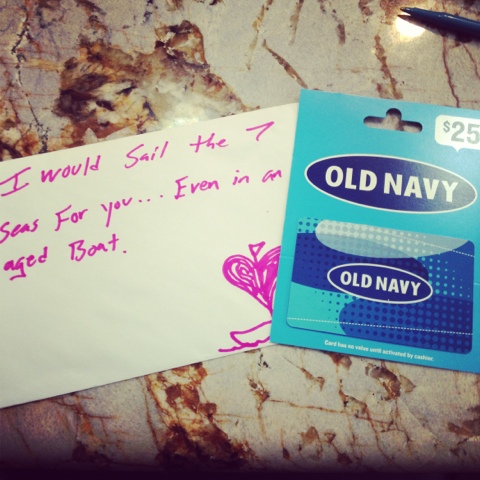 I would Sail the 7
Seas For you... Even in an
aged Boat.
$25
OLD NAVY
OLD NAVY
Card has no value until activated by cashier.